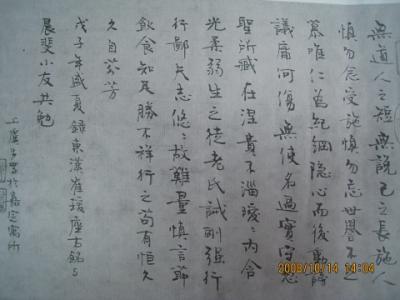 無道人之短無說己之長施人
慎勿念受施慎勿忘世譽不足
慕唯仁為紀綱隱心而後動謗
議庸何傷無使名過實守愚
聖所臧在涅貴不淄曖々內含
光柔弱生之徒老氏誡剛強行
行鄙夫志悠々故難量慎言節
飲食知足勝不祥行之苟有恆久
久自芬芳
戊子年盛夏錄東漢崔瑗座右銘與
晨斐小友共勉
上虞於嘉定寓所
2008/10/14 14:04